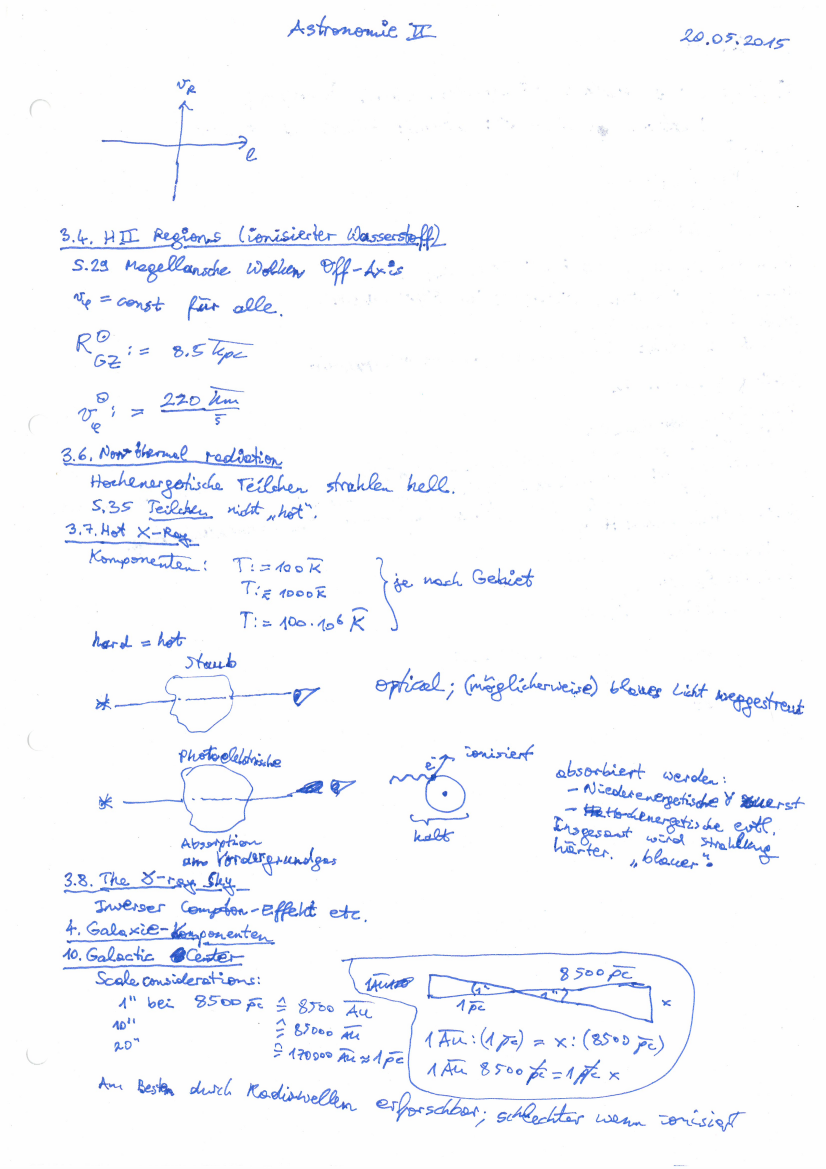 Astronomie II
20.05.2015
v_R
l
3.4. HII Regions (ionisierter Wasserstoff)
S.29 Magellansche Wolken Off-Axis
v_φ = const für alle.
R^⊙_GZ := 8.5 kpc
v^⊙_φ := 220 km/s
3.6. Non thermal radiation
Hochenergetische Teilchen strahlen hell.
S.35 Teilchen nicht „hot“.
3.7. Hot X-Ray
Komponenten: T := 100 K
T := 1000 K
T := 100·10^6 K
je nach Gebiet
hard = hot
Staub
optical; (möglicherweise) blaues Licht weggestreut
Photoelektrische
Absorption
am Vordergrundgas
e^-
ionisiert
kalt
absorbiert werden:
- Niederenergetische γ zuerst
- Hochenergetische evtl.
Insgesamt wird Strahlung
härter. „blauer“.
3.8. The γ-ray Sky
Inverser Compton-Effekt etc.
4. Galaxie-Komponenten
10. Galactic Center
Scale considerations:
1" bei 8500 pc ≙ 8500 Au
10" ≙ 85000 Au
20" ≙ 170000 Au ≈ 1 pc
1Au
1"
1"
8500 pc
1 pc
x
1 Au : (1 pc) = x : (8500 pc)
1 Au 8500 pc = 1 pc x
Am Besten durch Radiowellen erforschbar; schlechter wenn ionisiert